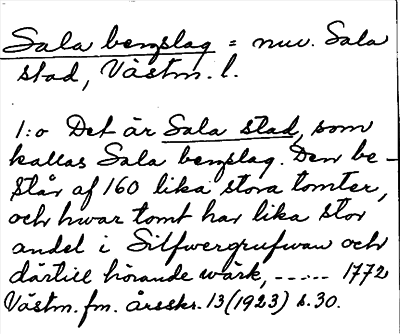 Sala bergslag = nuv. Sala
stad, Västm. l.
1:o Det är Sala stad, som
kallas Sala bergslag. Den be-
står af 160 lika stora tomter,
och hwar tomt har lika stor
andel i Silfwergrufwan och
därtill hörande wärk, ----- 1772
Västm. fm. årsskr. 13 (1923) s. 30.